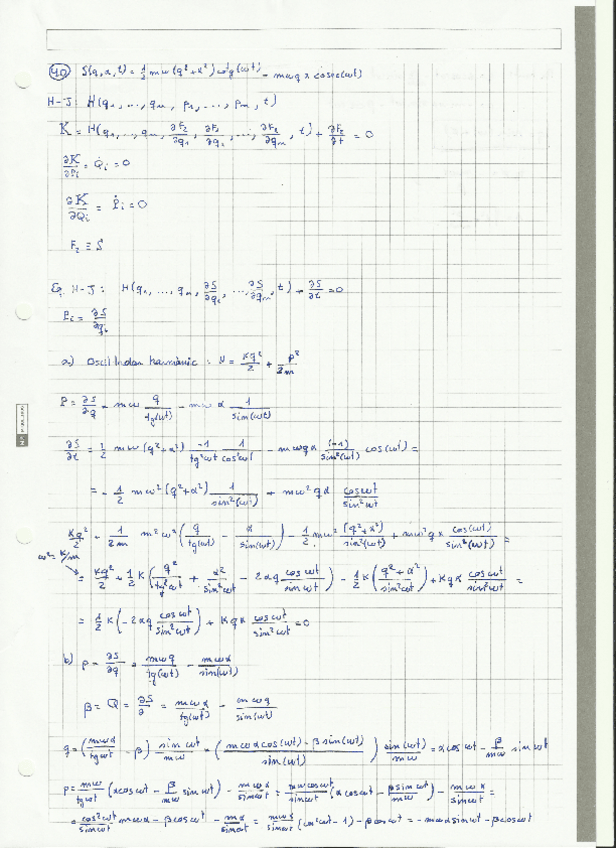 40 S(q,α,t) = 1/2 mω (q² + α²) cotg(ωt) - mωq α cosec(ωt)
H-J: H(q₁, ..., qₙ, p₁, ..., pₙ, t)
K = H(q₁, ..., qₙ, ∂F₂/∂q₁, ∂F₂/∂q₂, ..., ∂F₂/∂qₙ, t) + ∂F₂/∂t = 0
∂K/∂Pᵢ = Q̇ᵢ = 0
∂K/∂Qᵢ = Ṗᵢ = 0
F₂ ≡ S
Eq. H-J: H(q₁, ..., qₙ, ∂S/∂q₁, ..., ∂S/∂qₙ, t) + ∂S/∂t = 0
Pᵢ = ∂S/∂qᵢ
a) Oscil·lador harmònic: H = Kq²/2 + p²/2m
P = ∂S/∂q = mω q/tg(ωt) - mω α 1/sin(ωt)
∂S/∂t = 1/2 mω (q²+α²) -1/tg²ωt 1/cos²ωt - mωqα (-1)/sin²(ωt) cos(ωt) =
= -1/2 mω² (q²+α²) 1/sin²(ωt) + mω² qα cosωt/sin²ωt
Kq²/2 + 1/2m m²ω² (q/tg(ωt) - α/sin(ωt)) - 1/2 mω² (q²+α²)/sin²(ωt) + mω²qα cos(ωt)/sin²(ωt) =
ω² = K/m
= Kq²/2 + 1/2 K (q²/tg²ωt + α²/sin²ωt - 2αq cosωt/sin²ωt) - 1/2 K (q²+α²/sin²ωt) + Kqα cosωt/sin²ωt =
= 1/2 K (-2αq cosωt/sin²ωt) + Kqα cosωt/sin²ωt = 0
b) p = ∂S/∂q = mωq/tg(ωt) - mωα/sin(ωt)
β = Q = ∂S/∂ = mωα/tg(ωt) - mωq/sin(ωt)
q = (mωα/tgωt - β) sinωt/mω = (mωαcos(ωt) - βsin(ωt)/sin(ωt)) sin(ωt)/mω = αcosωt - β/mω sinωt
p = mω/tgωt (αcosωt - β/mω sinωt) - mωα/sinωt = mωcosωt/sinωt (αcosωt - βsinωt/mω) - mωα/sinωt =
= cos²ωt/sinωt mωα - βcosωt - mα/sinωt = mωα/sinωt (cos²ωt - 1) - βcosωt = -mωαsinωt - βcosωt